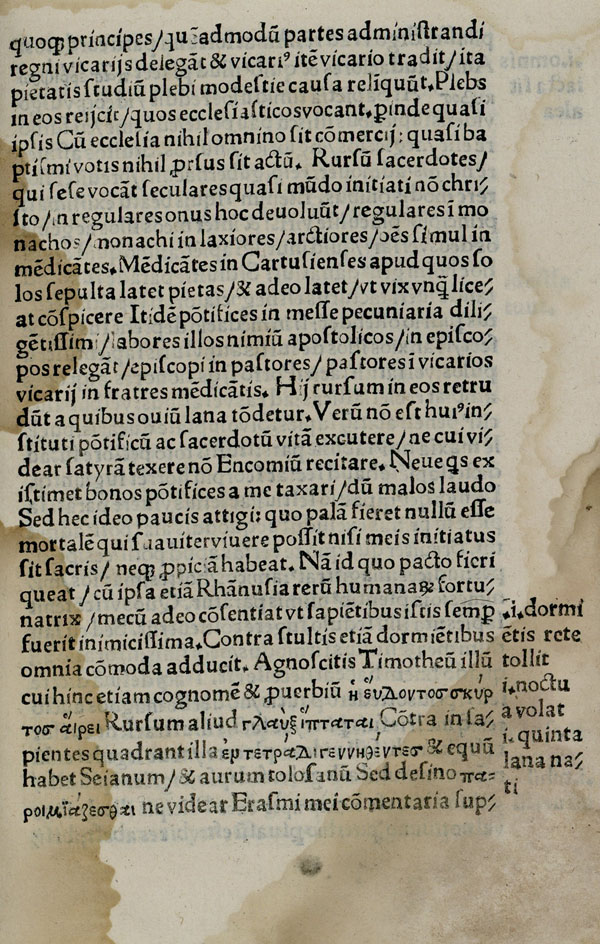 quoqꝫ principes/quēadmodū partes administrandi
regni vicarijs delegāt & vicariꝰ itē vicario tradit/ita
pietatis studiū plebi modestie causa relīquūt. Plebs
in eos reijcit/quos ecclesiasticos vocant. ꝓinde quasi
ipsis Cū ecclesia nihil omnino sit cōmercij: quasi ba
ptismi votis nihil ꝓrsus sit actū. Rursū sacerdotes/
qui sese vocāt seculares quasi mūdo initiati nō chri⸗
sto/in regulares onus hoc deuoluūt/regulares ī mo
nachos/monachi in laxiores/arctiores/oēs simul in
mēdicātes. Mēdicātes in Cartusienses apud quos so
los sepulta latet pietas/& adeo latet/vt vix vnq̄ lice⸗
at cōspicere Itidē pōtifices in messe pecuniaria dili⸗
gētissimi/labores illos nimiū apostolicos/in episco⸗
pos relegāt/episcopi in pastores/pastores ī vicarios
vicarij in fratres mēdicātis. Hij rursum in eos retru
dūt a quibus ouiū lana tōdetur. Verū nō est huiꝰ in⸗
stituti pōtificū ac sacerdotū vitā excutere/ne cui vi⸗
dear satyrā texere nō Encomiū recitare. Neue q̄s ex
istimet bonos pōtifices a me taxari/dū malos laudo
Sed hec ideo paucis attigi: quo palā fieret nullū esse
mortalē qui suauiter viuere possit nisi meis initiatus
sit sacris/ neqꝫ ꝓpiciā habeat. Nā id quo pacto fieri
queat/cū ipsa etiā Rhānusia rerū humanaꝝ fortu⸗
natrix/mecū adeo cōsentiat vt sapiētibus istis semꝑ
fuerit inimicissima. Contra stultis etiā dormiētibus
omnia cōmoda adducit. Agnoscitis Timotheū illū
cui hinc etiam cognomē & ꝓuerbiū ἡ εὕδοντος σκύρ
τος αἱρει Rursum aliud γλαὺξ ἵπταται Cōtra in sa⸗
pientes quadrant illa ἐμ τετράδι γεννηθέντες & equū
habet Seianum/& aurum tolosanū Sed desino πα⸗
ροιμϊάζεσθαι ne videar Erasmi mei cōmentaria sup⸗
.i. dormi
ētis rete
tollit
i. noctu
a volat
i. quinta
lana na⸗
ti